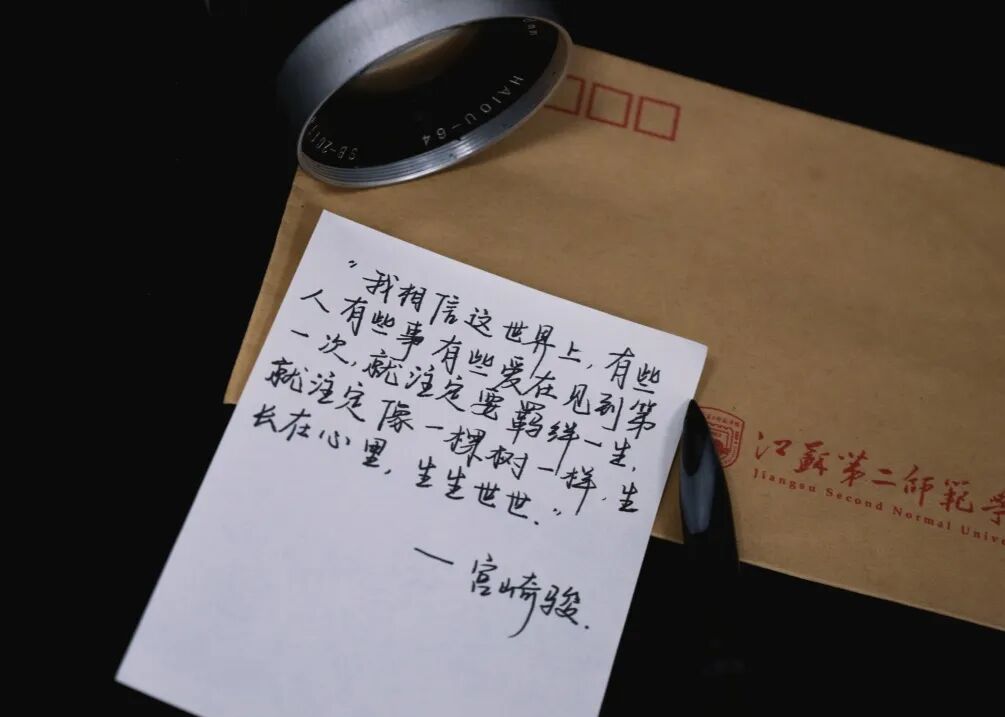 HAIOU-64
"我相信这世界上，有些
人有些事有些爱在见到第
一次，就注定要羁绊一生，
就注定像一棵树一样，生
长在心里，生生世世."
—宫崎骏.
江蘇第二师範学
Jiangsu Second Normal Unive